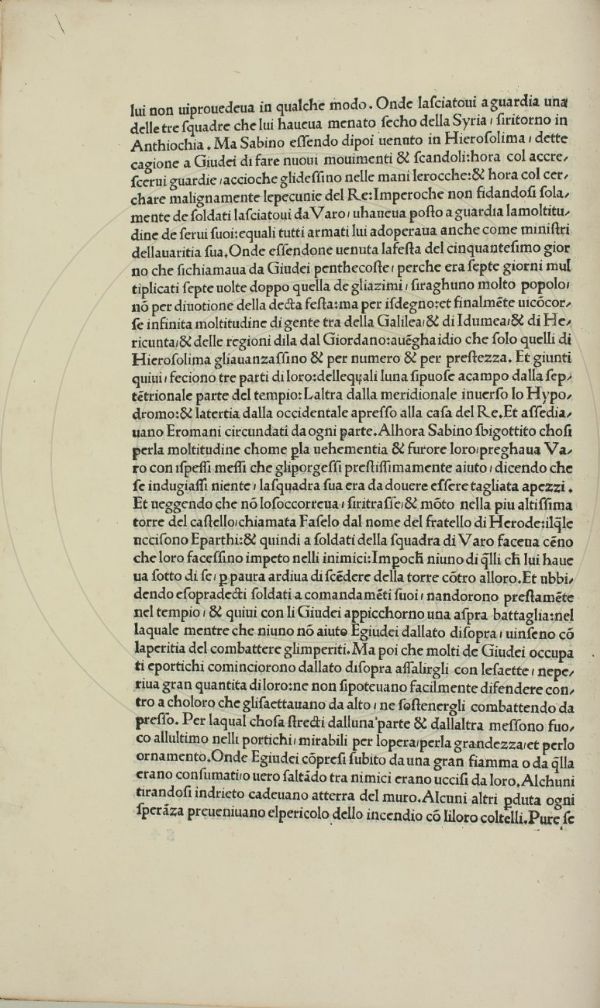 lui non uiprouedeua in qualche modo. Onde lasciatoui aguardia una
delle tre squadre che lui haueua menato secho della Syria, siritorno in
Anthiochia. Ma Sabino essendo dipoi uenuto in Hierosolima, dette
cagione a Giudei di fare nuoui mouimenti & scandoli:hora col accre/
scerui guardie, accioche glidessino nelle mani lerocche:& hora col cer/
chare malignamente lepecunie del Re:Imperoche non fidandosi sola/
mente de soldati lasciatoui da Varo, uhaueua posto a guardia lamoltitu/
dine de serui suoi:equali tutti armati lui adoperaua anche come ministri
dellauaritia sua. Onde essendone uenuta lafesta del cinquantesimo gior
no che sichiamaua da Giudei penthecoste, perche era septe giorni mul
tiplicati septe uolte doppo quella de gliazimi, siraghuno molto popolo,
nõ per diuotione della decta festa:ma per isdegno:et finalmẽte uicõcor/
se infinita moltitudine di gente tra della Galilea,& di Idumea,& di He/
ricunta,& delle regioni dila dal Giordano:auẽghaidio che solo quelli di
Hierosolima gliauanzassino & per numero & per prestezza. Et giunti
quiui, feciono tre parti di loro:dellequali luna sipuose acampo dalla sep/
tẽtrionale parte del tempio:Laltra dalla meridionale inuerso lo Hypo/
dromo:& latertia dalla occidentale apresso alla casa del Re. Et assedia/
uano Eromani circundati da ogni parte. Alhora Sabino sbigottito chosi
perla moltitudine chome p̱la uehementia & furore loro, preghaua Va/
ro con ispessi messi che gliporgessi prestissimamente aiuto, dicendo che
se indugiassi niente, lasquadra sua era da douere essere tagliata apezzi.
Et ueggendo che nõ losoccorreua, siritrasse,& mõto nella piu altissima
torre del castello,chiamata Faselo dal nome del fratello di Herode:ilq̃le
uccisono Eparthi:& quindi a soldati della squadra di Varo faceua cẽno
che loro facessino impeto nelli inimici:Impoch̃ niuno di q̃lli ch̃ lui haue
ua sotto di se, p̱ paura ardiua di scẽdere della torre cõtro alloro. Et ubbi/
dendo esopradecti soldati a comandamẽti suoi, nandorono prestamẽte
nel tempio, & quiui con li Giudei appicchorno una aspra battaglia:nel
laquale mentre che niuno nõ aiuto Egiudei dallato disopra, uinseno cõ
laperitia del combattere glimperiti. Ma poi che molti de Giudei occupa
ti eportichi cominciorono dallato disopra assalirgli con lesaette, nepe/
riua gran quantita di loro:ne non sipoteuano facilmente difendere con/
tro a choloro che glisaettauano da alto, ne sostenergli combattendo da
presso. Per laqual chosa strecti dalluna parte & dallaltra messono fuo/
co allultimo nelli portichi, mirabili per lopera,perla grandezza,et perlo
ornamento. Onde Egiudei cõpresi subito da una gran fiamma o da q̃lla
erano consumati,o uero saltãdo tra nimici erano uccisi da loro, Alchuni
tirandosi indrieto cadeuano atterra del muro. Alcuni altri p̱duta ogni
sperãza preueniuano elpericolo dello incendio cõ liloro coltelli. Pure se